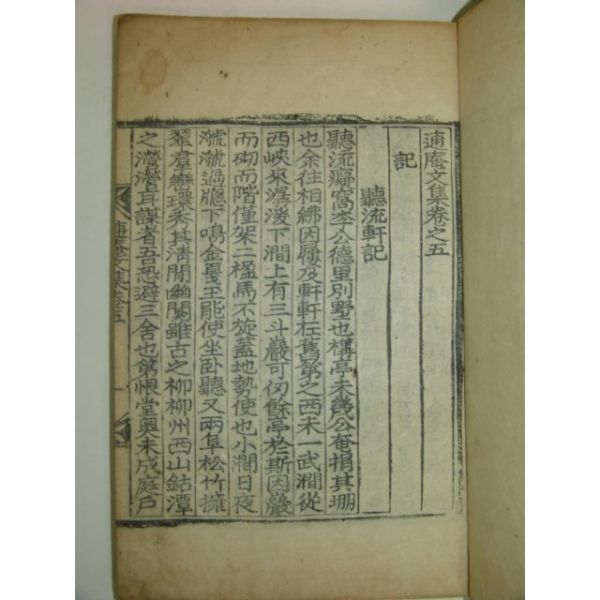 逋庵文集卷之五
記
聽流軒記
聽流癡窩李公德里別墅也構亭未幾公奄捐其堋
也余往相紼因屨及軒軒在舊第之西未一武澗從
西峽來潺湲下澗上有三斗巖可仞餘亭於斯因巖
而砌而階僅架二楹馬不旋蓋地勢使也小澗日夜
㶁㶁過牕下鳴金戛玉能使坐卧聽又兩阜松竹擁
翠羣巒環秀其淸閒幽闃雖古之柳柳州西山鈷潭
之瀯瀯耳謀者吾恐避三舍也第恨堂奧未成庭戶
文集卷五
一